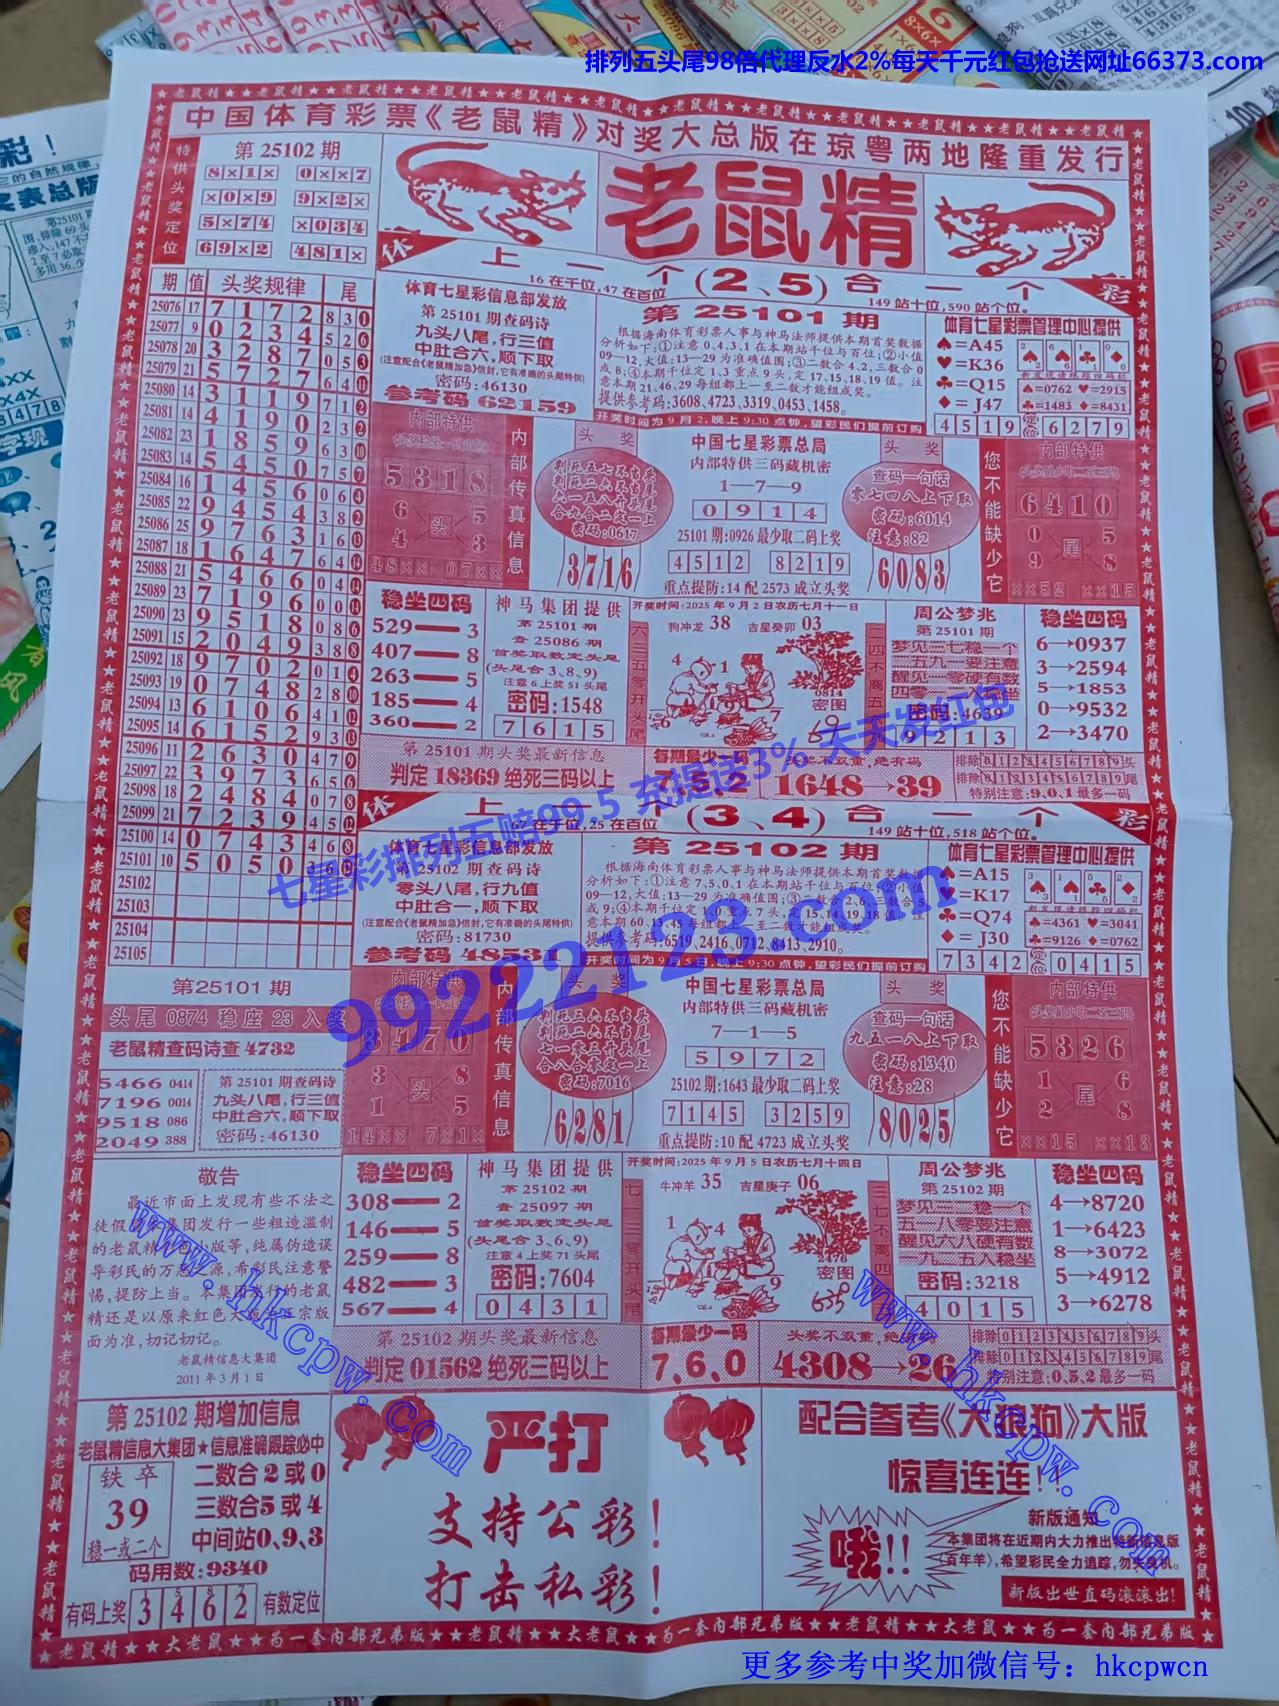 排列五头尾98倍代理反水2%每天千元红包抢送网址66373.com
中国体育彩票《老鼠精》对奖大总版在琼粤两地隆重发行
特供头奖定位
第25102期
8×1× 0××7
×0×9 9×2×
5×74 ×034
69×2 481×
老鼠精
期 值 头奖规律 尾
25076 17 7 1 7 2 8 3
25077 9 0 2 3 4 5 2
25078 20 3 2 8 7 0 5
25079 21 5 7 2 7 6 4
25080 14 3 1 1 9 7 1
25081 14 4 1 9 0 2 3
25082 23 1 8 5 9 6 3
25083 14 5 4 5 0 7 5
25084 16 1 4 5 6 0 6
25085 22 9 4 5 4 3 8
25086 25 9 7 6 3 1 6
25087 18 1 6 4 7 6 4
25088 21 5 4 6 6 0 4
25089 23 7 1 9 6 0 0
25090 23 9 5 1 8 0 8
25091 15 2 0 4 9 3 8
25092 18 9 7 0 2 0 1
25093 19 0 7 4 8 2 8
25094 13 6 1 0 6 4 1
25095 14 6 1 5 2 9 3
25096 11 2 6 3 0 4 7
25097 22 3 9 7 3 6 5
25098 18 2 4 8 4 0 7
25099 21 7 2 3 9 4 5
25100 14 0 7 4 3 4 6
25101 10 5 0 5 0 3 6
25102
25103
25104
25105
体 上一个(2、5)合一个 彩
16在千位,47在百位
149站十位,590站个位.
体育七星彩信息部发放
第25101期查码诗
九头八尾,行三值
中肚合六,顺下取
(注意配合《老鼠精加急》信封,它有准确的头尾特供)
密码:46130
参考码 62159
第25101期
根据海南体育彩票人事与神马法师提供本期首奖数据
分析如下:①注意0、4、3、1在本期站千位与百位;②小值
09—12,大值:13—29为准确值围;③二数合4、2,三数合0
或8;④本期千位定1、3重点9头,定17、15、18、19值。注
意本期21、46、29每组都上一至二数才能组成奖。
提供参考码:3608、4723、3319、0453、1458。
开奖时间为9月2,晚上9:30点钟,望彩民们提前订购
体育七星彩票管理中心提供
♠=A45
♥=K36
♣=Q15
♦=J47
♠=0762 ♥=2915
♣=1483 ♦=8431
4519 定位 6279
内部特供
5318
6 5
头
4 3
48×× 07××
内部传真信息
头奖
判死五七不当头
判死二六不当尾
六一五八开头尾
合九合二定一上
密码:0617
3716
中国七星彩票总局
内部特供三码藏机密
1—7—9
0914
25101期:0926最少取二码上奖
4512 8219
重点提防:14配2573成立头奖
头奖
查码一句话
零七四八上下取
密码:6014
注意:82
6083
您不能缺少它
内部特供
6410
0 5
尾
9 8
××52 ××15
稳坐四码
529—3
407—8
263—5
185—4
360—2
神马集团提供
第25101期
查25086期
首奖取数定头尾
(头尾合3、8、9)
注意6上奖51头尾
密码:1548
7615
开奖时间:2025年9月2日农历七月十一日
六三五零开头尾
狗冲龙38 吉星癸卯03
0814
密图
周公梦兆
第25101期
梦见二七稳一个
一五九一要注意
醒见一零硬有数
密码:4639
9213
稳坐四码
6→0937
3→2594
5→1853
0→9532
2→3470
第25101期头奖最新信息
判定18369绝死三码以上
每期最少一码
7、5、2
头奖不双重,绝有码
1648→39
排除0123456789头
排除0123456789尾
特别注意:9、0、1最多一码
体 上一个(3、4)合一个 彩
67在千位,25在百位
149站十位,518站个位.
体育七星彩信息部发放
第25102期查码诗
零头八尾,行九值
中肚合一,顺下取
(注意配合《老鼠精加急》信封,它有准确的头尾特供)
密码:81730
参考码 48531
第25102期
根据海南体育彩票人事与神马法师提供本期首奖数据
分析如下:①注意7、5、0、1在本期站千位与百位;②小值
09—12,大值:13—29为准确值围;③二数合2、6,三数合5
或9;④本期千位定1、0重点7头,定15、14、19、18值。注
意本期60、13、45每组都上一至二数才能组成奖。
提供参考码:6519、2416、0712、8413、2910。
开奖时间为9月5日,晚上9:30点钟,望彩民们提前订购
体育七星彩票管理中心提供
♠=A15
♥=K17
♣=Q74
♦=J30
♠=4361 ♥=3041
♣=9126 ♦=0762
7342 定位 0415
七星彩排列五赔99.5 充提送3% 天天发红包
99222123.com
第25101期
头尾0874稳座23入奖
老鼠精查码诗查4732
5466 0414
7196 0014
9518 086
2049 388
第25101期查码诗
九头八尾,行三值
中肚合六,顺下取
密码:46130
内部特供
3470
3 8
头
1 5
14×× 7×1×
内部传真信息
头奖
判死三六不当头
判死二六不当尾
七一零三开头尾
合八合零定一上
密码:7016
6281
中国七星彩票总局
内部特供三码藏机密
7—1—5
5972
25102期:1643最少取二码上奖
7145 3259
重点提防:10配4723成立头奖
头奖
查码一句话
九五一八上下取
密码:1340
注意:28
8025
您不能缺少它
内部特供
5326
1 6
尾
2 8
××15 ××13
敬告
最近市面上发现有些不法之
徒假冒本集团发行一些粗造滥制
的老鼠精加色小版等,纯属伪造误
导彩民的万恶之源,希彩民注意警
惕,提防上当。本集团发行的老鼠
精还是以原来红色大版为正宗版
面为准,切记切记。
老鼠精信息大集团
2011年3月1日
稳坐四码
308—2
146—5
259—8
482—3
567—4
神马集团提供
第25102期
查25097期
首奖取数定头尾
(头尾合3、6、9)
注意4上奖71头尾
密码:7604
0431
开奖时间:2025年9月5日农历七月十四日
七一三零开头尾
牛冲羊35 吉星庚子06
2476
密图
周公梦兆
第25102期
梦见三二稳一个
五一八零要注意
醒见六八硬有数
一九一五八稳坐
密码:3218
4015
稳坐四码
4→8720
1→6423
8→3072
5→4912
3→6278
第25102期头奖最新信息
判定01562绝死三码以上
每期最少一码
7、6、0
头奖不双重,绝有码
4308→26
排除0123456789头
排除0123456789尾
特别注意:0、5、2最多一码
www.hkcpw.com
www.hkcpw.com
第25102期增加信息
老鼠精信息大集团★信息准确跟踪必中
铁卒
39
稳一或二个
二数合2或0
三数合5或4
中间站0、9、3
码用数:9340
有码上奖 3462 有数定位
严打
支持公彩!
打击私彩!
配合参考《大狼狗》大版
惊喜连连!!
哦!!
新版通知
本集团将在近期内大力推出特新信息版
《百年羊》,希望彩民全力追踪,勿失良机。
新版出世直码滚滚出!
★★老鼠精★★大老鼠★★为一套内部兄弟版★★老鼠精★★大老鼠★★为一套内部兄弟版★★老鼠精★★大老鼠★★为一套内部兄弟版★
更多参考中奖加微信号：hkcpwcn